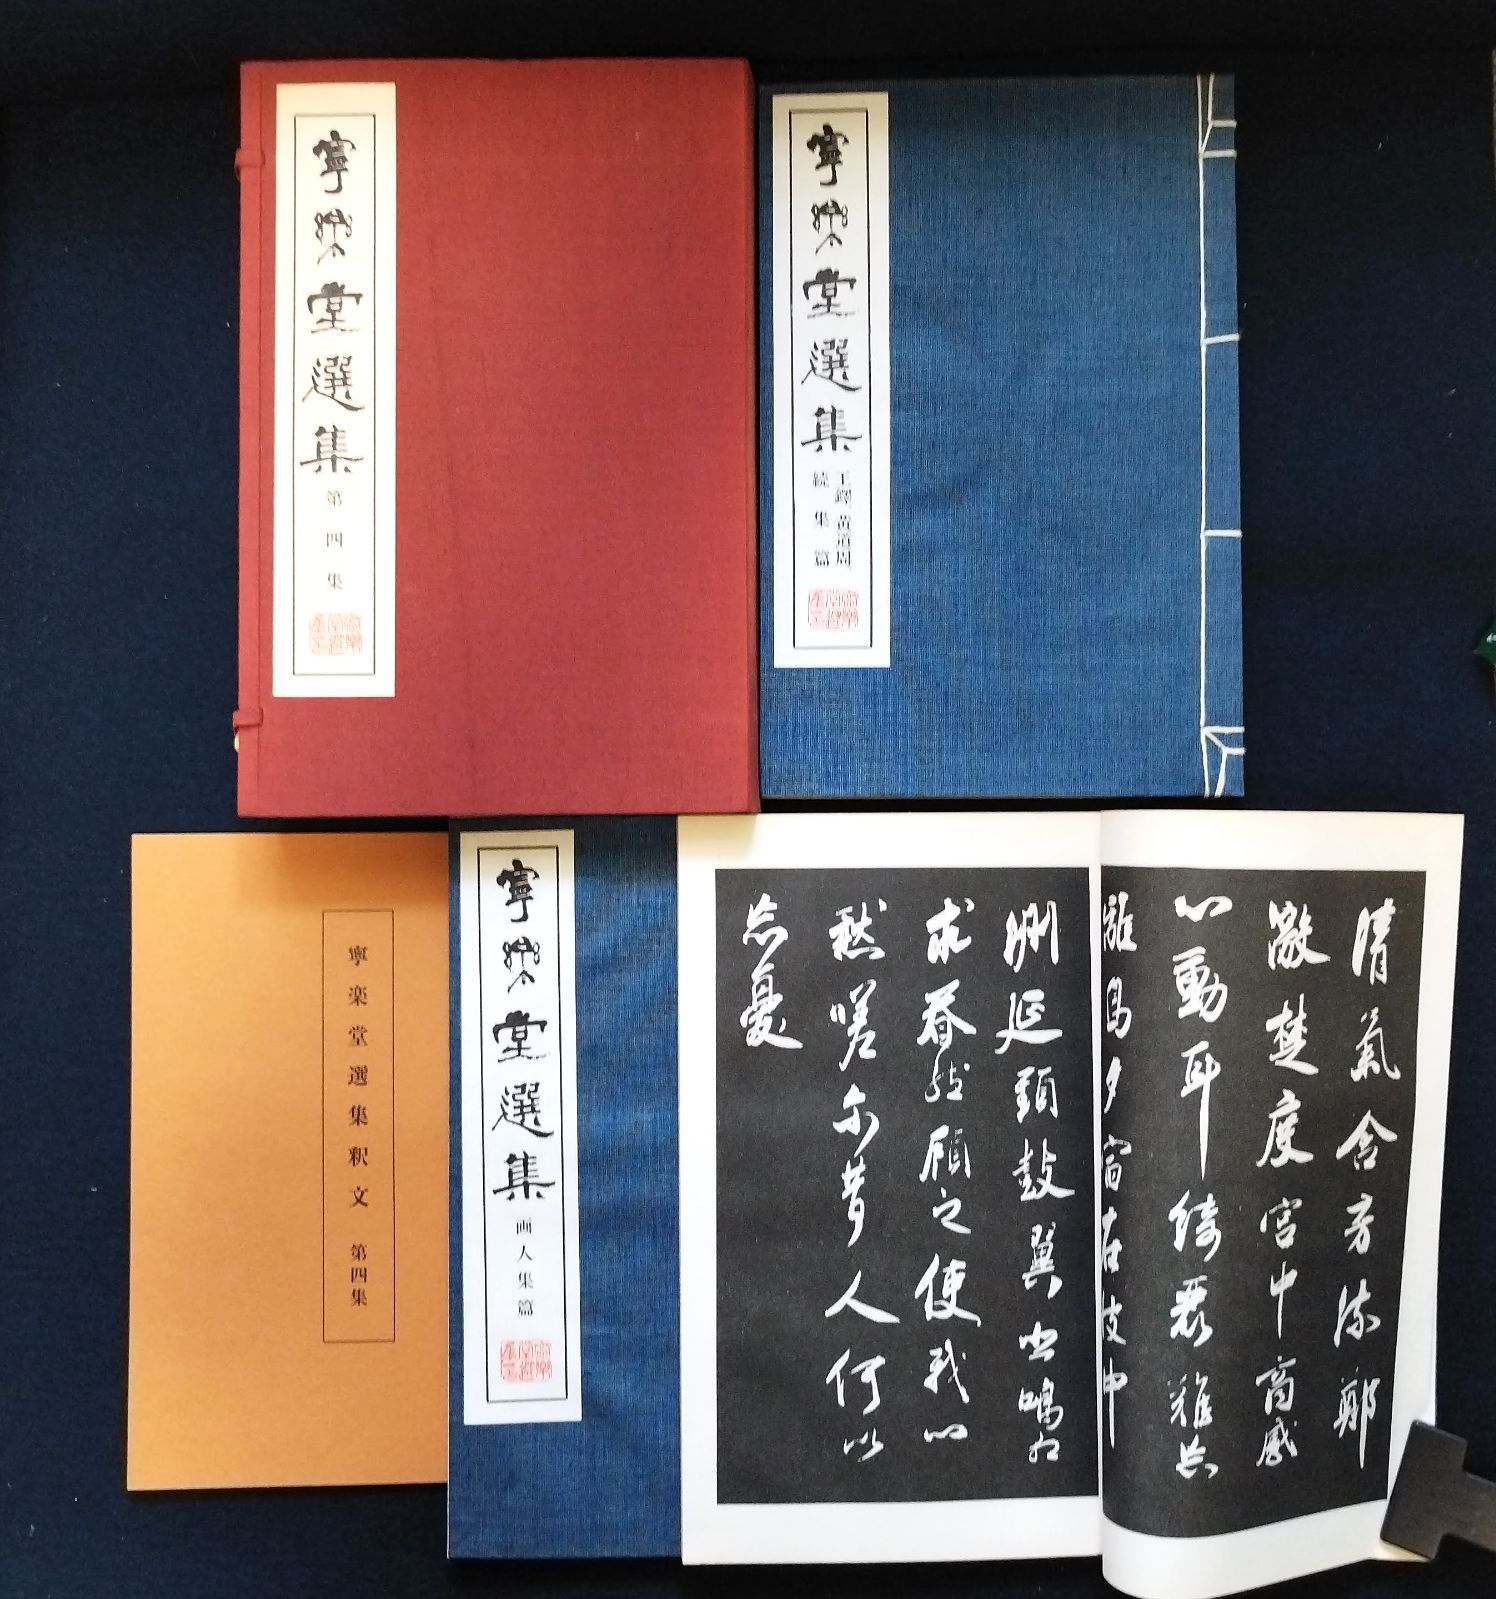 寧樂堂選集
第四集
寧樂堂選集
王鐸、黄道周、
続集篇
寧楽堂選集釈文 第四集
寧樂堂選集
画人集篇
清氣含芳流鄭
激楚度宮中商感
心動耳綺麗難忘
離鳥夕宿在彼中
洲延頸鼓翼悲鳴相
求眷然顧之使我心
愁嗟尔昔人何以
忘憂